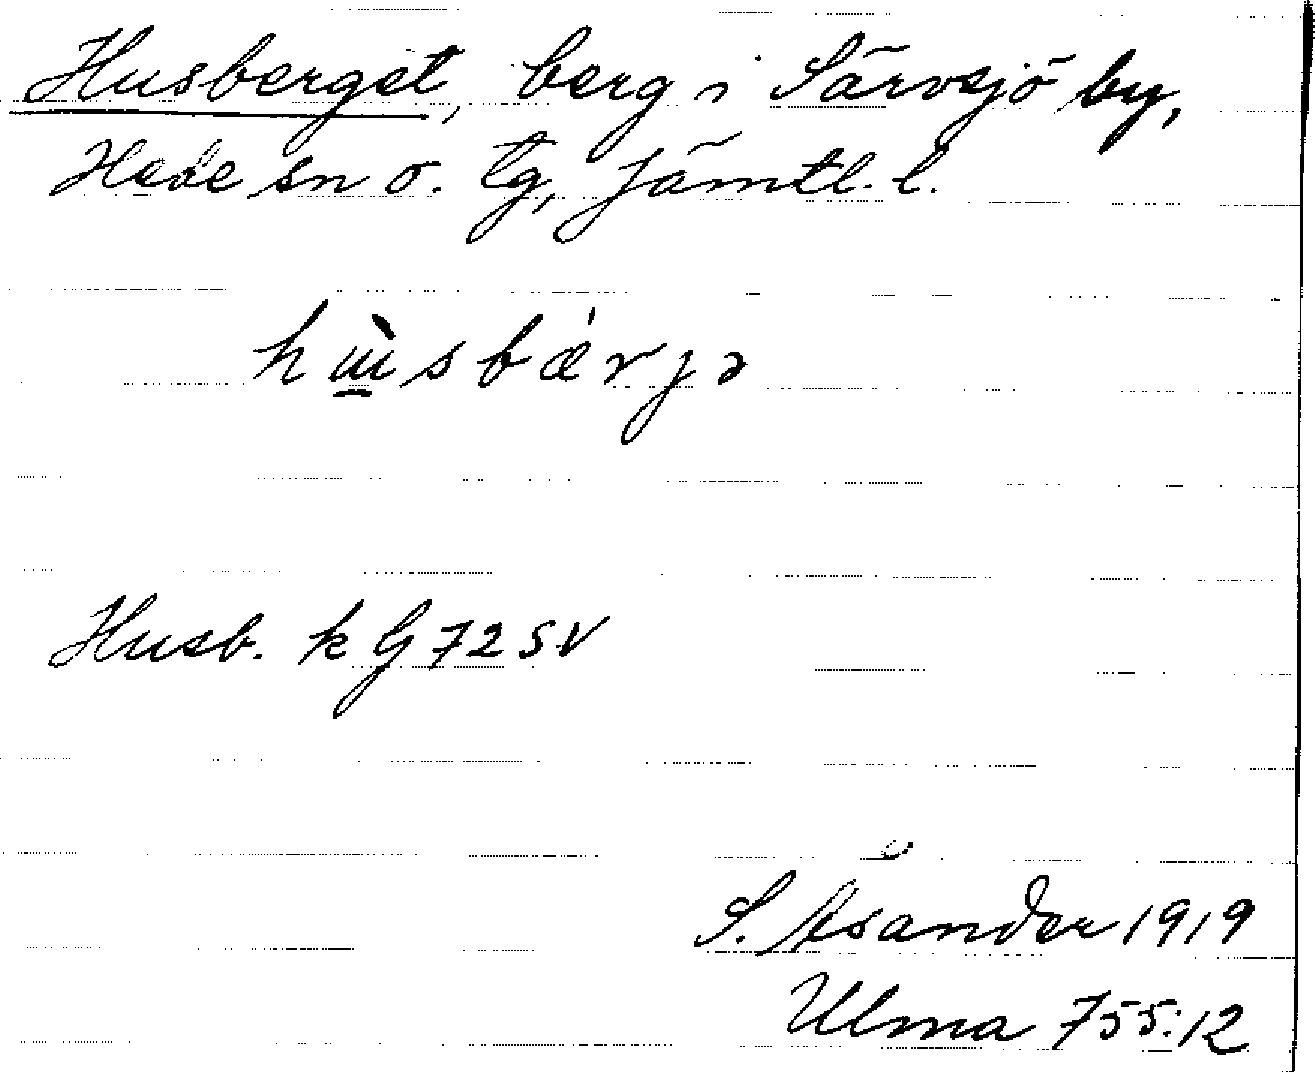 Husberget, berg i Särvsjö by,
Hede sn o. tg, Jämtl. l.
hɯ̀sbǽrjə
Husb. k G 72 SV
S. Åsander 1919
Ulma 755:12